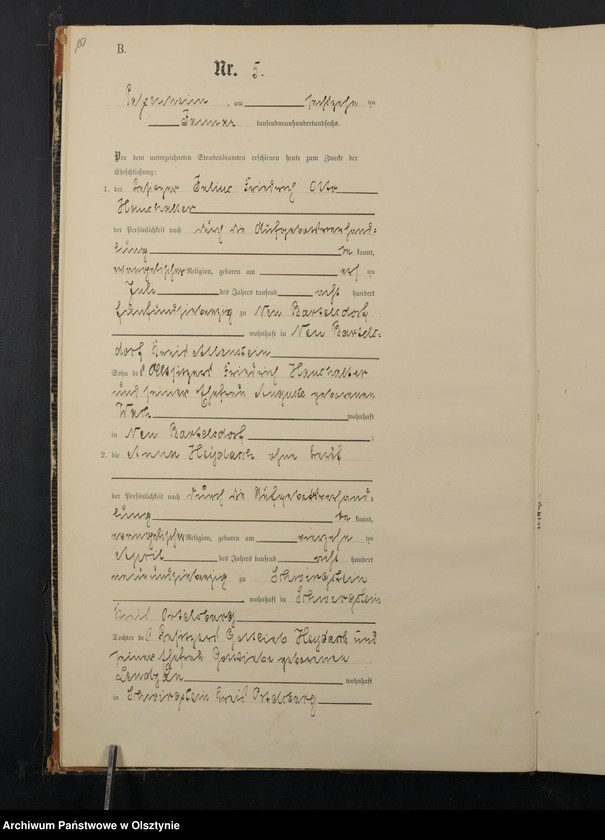 B.
Nr. 5.
Passenheim, am sechszehn ten
Januar tausendneunhundertundsechs.
Vor dem unterzeichneten Standesbeamten erschienen heute zum Zwecke der
Eheschließung:
1. der Besitzer Julius Friedrich Otto
Haushalter
der Persönlichkeit nach durch die Aufgebotsverhand=
lung be kannt,
evangelischer Religion, geboren am elf ten
Juli des Jahres tausend acht hundert
fünfundsiebenzig zu Neu Bartelsdorf
wohnhaft in Neu Bartels=
dorf Kreis Allenstein
Sohn des Altsitzers Friedrich Haushalter
und seiner Ehefrau Auguste geborenen
wohnhaft
in Neu Bartelsdorf ;
2. die Anna Heydasch ohne Beruf
der Persönlichkeit nach durch die Aufgebotsverhand=
lung be kannt,
evangelischer Religion, geboren am vierzehn ten
April des Jahres tausend acht hundert
neunundsiebenzig zu Schwirgstein
wohnhaft in Schwirgstein
Kreis Ortelsburg
Tochter des Besitzers Gottlieb Heydasch und
seiner Ehefrau Gottliebe geborenen
wohnhaft
in Schwirgstein Kreis Ortelsburg
Archiwum Państwowe w Olsztynie